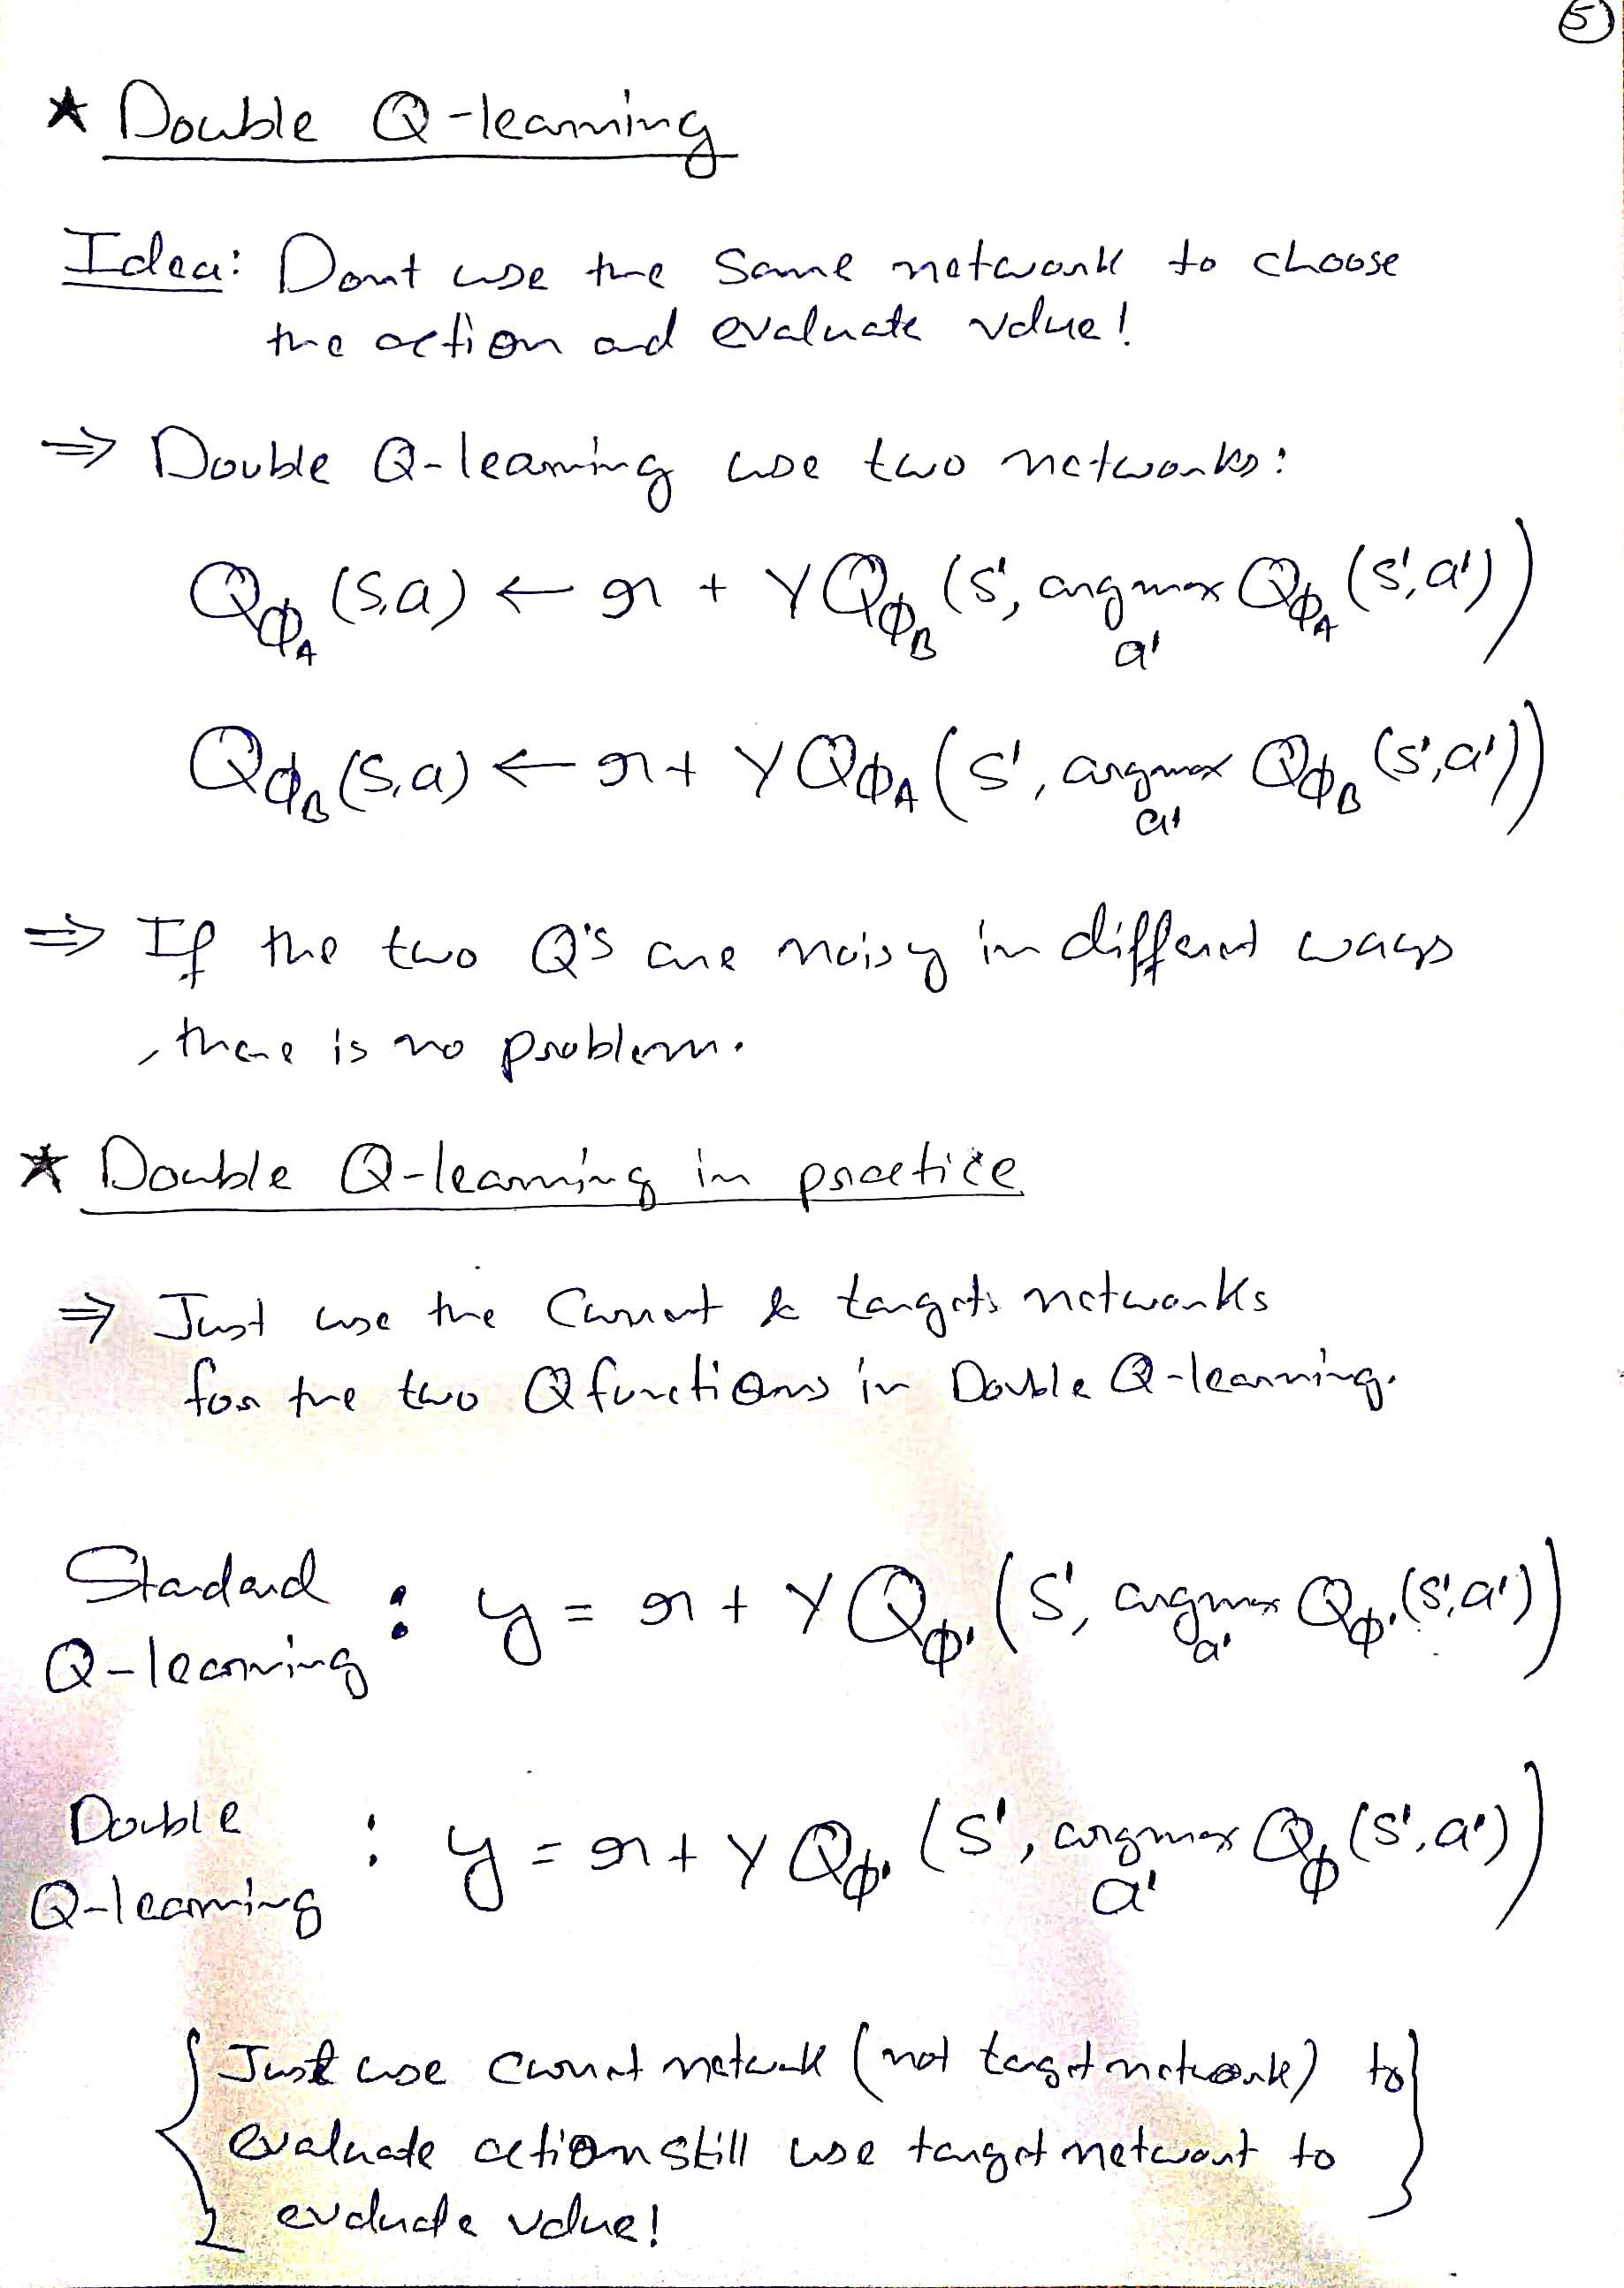 5
★ Double Q-learning
Idea: Dont use the same network to choose
the action and evaluate value!
⇒ Double Q-learning use two networks:
Q_{ϕ_A}(s,a) ← r + γ Q_{ϕ_B}(s', argmax_{a'} Q_{ϕ_A}(s',a'))
Q_{ϕ_B}(s,a) ← r + γ Q_{ϕ_A}(s', argmax_{a'} Q_{ϕ_B}(s',a'))
⇒ If the two Q's are noisy in different ways
, there is no problem.
★ Double Q-learning in practice
⇒ Just use the current & targets networks
for the two Q functions in Double Q-learning.
Standard Q-learning : y = r + γ Q_{ϕ'}(s', argmax_{a'} Q_{ϕ'}(s',a'))
Double Q-learning : y = r + γ Q_{ϕ'}(s', argmax_{a'} Q_ϕ(s',a'))
{ Just use current network (not target network) to }
evaluate action still use target network to
evaluate value!